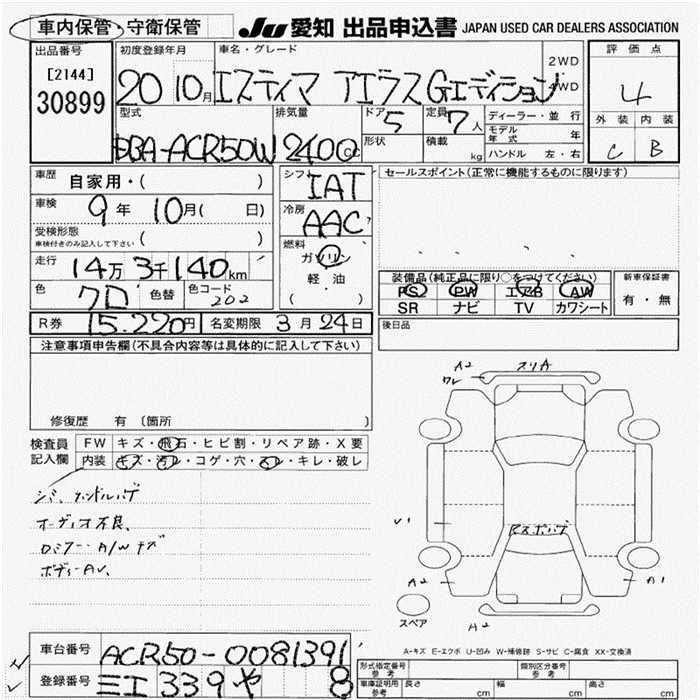 車内保管・守衛保管 JU 愛知 出品申込書 JAPAN USED CAR DEALERS ASSOCIATION
出品番号 初度登録年月 車名・グレード 2WD 4WD 評価点
[2144] 30899 20 10月 エスティマ アエラス Gエディション 4
型式 排気量 ドア 5 定員 7人 ディーラー・並行 外装 内装
DBA-ACR50W 2400cc 形状 積載 kg モデル年式 年 C B
ハンドル 左・右
車歴 自家用・( ) シフト IAT セールスポイント(正常に機能するものに限ります)
車検 9年 10月( 日) 冷房 AAC
受検形態 ( )
車検付きのみ記入して下さい
燃料 ガソリン
走行 14万3千140km 軽油
( )
装備品(純正品に限り○をつけてください) 新車保証書
色 クロ 色替 色コード 202 PS PW エアB AW 有・無
SR ナビ TV カワシート
R券 15,220円 名変期限 3月24日 後日品
注意事項申告欄(不具合内容等は具体的に記入して下さい)
修復歴 有 〔箇所 〕
A2 スリA
ワレ
検査員記入欄 FW キズ・飛石・ヒビ割・リペア跡・X要
内装 キズ・汚レ・コゲ・穴・スレ・キレ・破レ
シミ、ハンドルハゲ
オーディオ不良、
ロミラー・A/Wキズ
ボディーAU、
U1
A2 A1
スペア A2
A-キズ E-エクボ U-凹み W-補修跡 S-サビ C-腐食 XX-交換済
車台番号 ACR50-0081391
登録番号 三エ 339 や 8
形式指定番号 参考 類別区分番号 参考
車庫証明用 参考 長さ cm 幅 cm 高さ cm